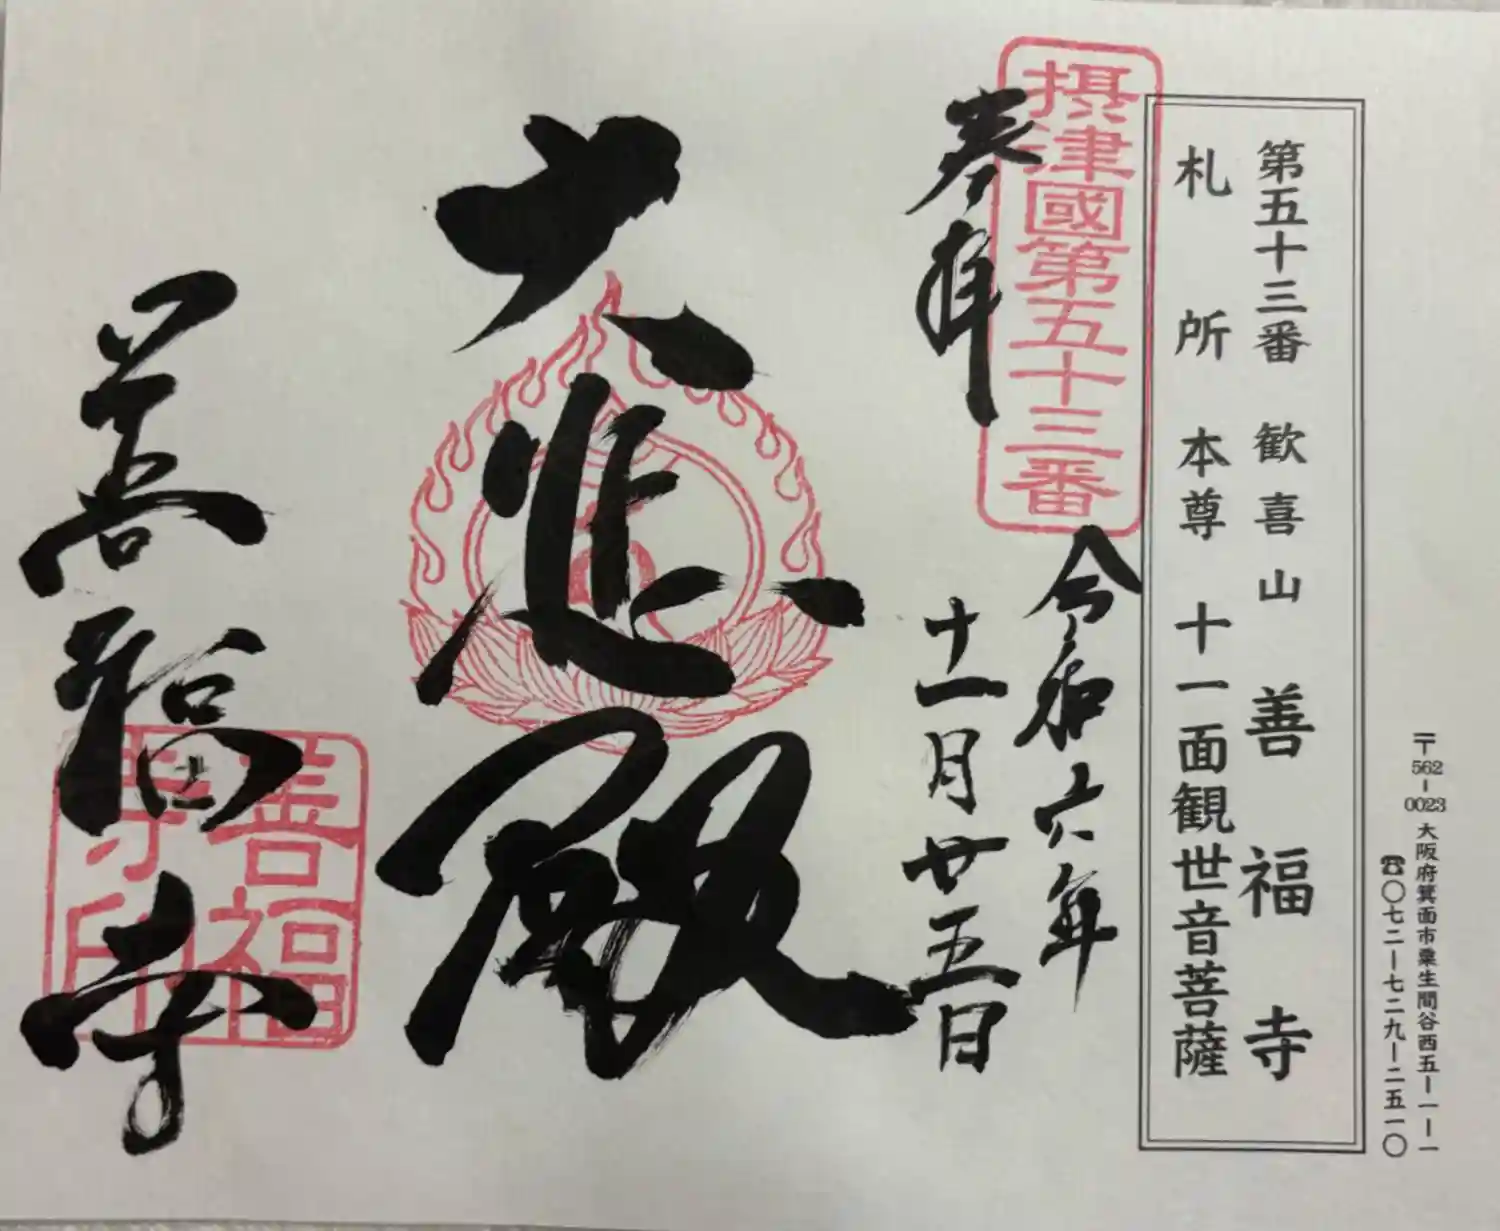 〒562-0023 大阪府箕面市粟生間谷西五ー一ー一
☎〇七二ー七二九ー二五一〇
第五十三番 歓喜山 善福寺
札所本尊 十一面観世音菩薩
摂津國第五十三番
奉拝
令和六年
十一月廿五日
大悲殿
善福寺
善福寺印